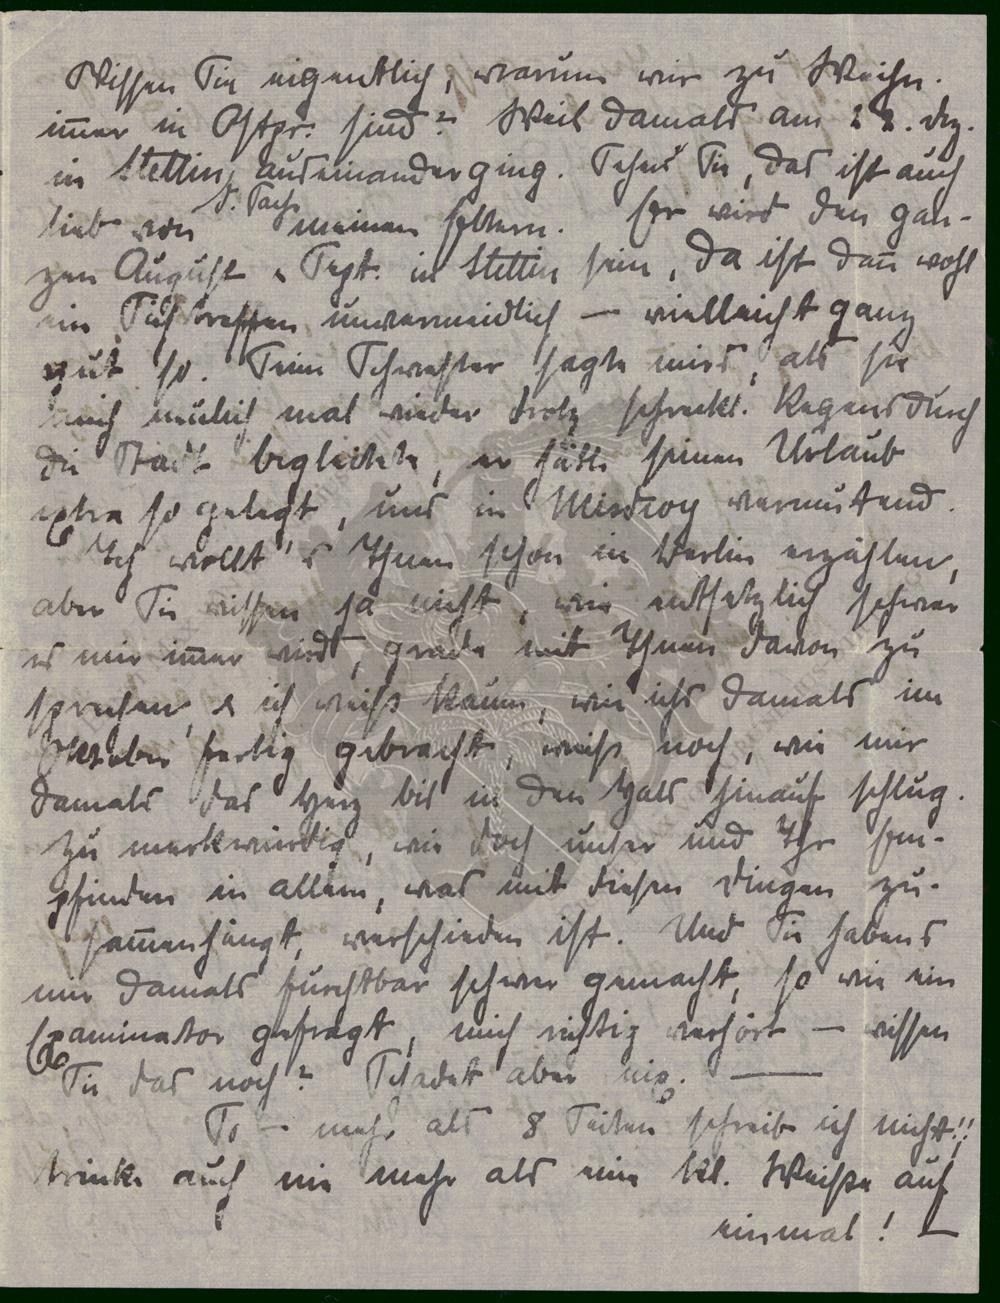 Wissen Sie eigentlich, warum wir zu Weihn.
im̅er in Ostpr. sind? Weil damals am 22. Dez.
in Stettin auseinanderging. Sehns Sie, das ist auch
lieb von d. Sache meinen Eltern. Er wird den gan-
zen August u Sept. in Stettin sein, da ist dan̅ wohl
ein Sichtreffen unvermeidlich — vielleicht ganz
gut so. Seine Schwester sagte mirs, als sie
mich neulich mal wieder trotz schreckl. Regens durch
die Stadt begleitete, er hätte seinen Urlaub
extra so gelegt, uns in Misdroy vermutend.
Ich wollt's Ihnen schon in Berlin erzählen,
aber Sie wissen ja nicht, wie entsetzlich schwer
es mir im̅er wird, grade mit Ihnen davon zu
sprechen, u ich weiß kaum, wie ichs damals im
Oktober fertig gebracht, weiß noch, wie mir
damals das Herz bis in den Hals hinauf schlug.
Zu merkwürdig, wie doch unser und Ihr Em-
pfinden in allem, was mit diesen Dingen zu-
sam̅enhängt, verschieden ist. Und Sie habens
mir damals furchtbar schwer gemacht, so wie ein
Examinator gefragt, mich richtig verhört — wissen
Sie das noch? Schadet aber nix. —
So — mehr als 8 Seiten schreib ich nicht!!
trinke auch nie mehr als eine kl. Weiße auf
einmal! —